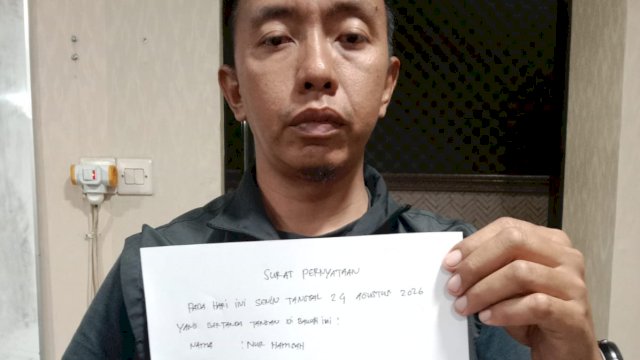 SURAT PERNYATAAN
PADA HARI INI SENIN TANGGAL 24 AGUSTUS 2026
YANG BERTANDA TANGAN DI BAWAH INI :
NAMA : NUR